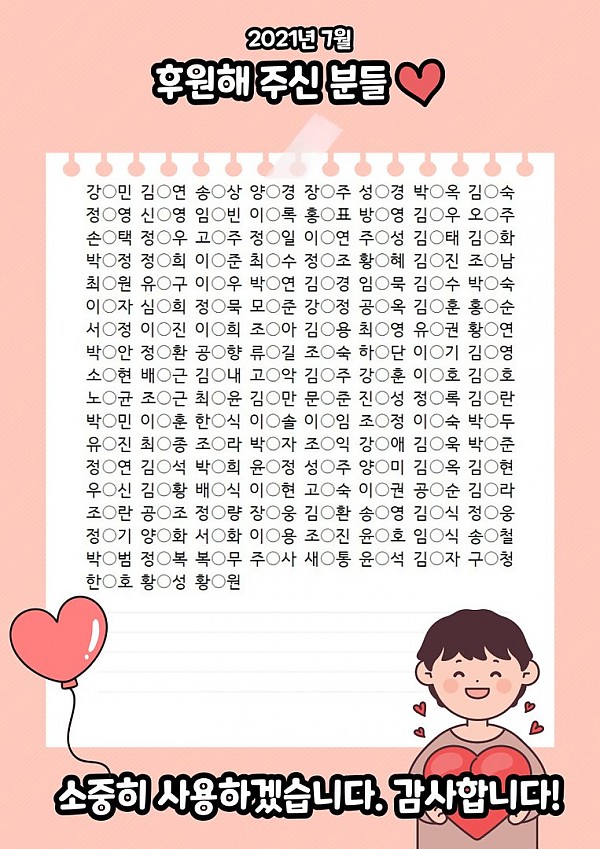 2021년 7월
후원해 주신 분들
강○민 김○연 송○상 양○경 장○주 성○경 박○옥 김○숙
정○영 신○영 임○빈 이○록 홍○표 방○영 김○우 오○주
손○택 정○우 고○주 정○일 이○연 주○성 김○태 김○화
박○정 정○희 이○준 최○수 정○조 황○혜 김○진 조○남
최○원 유○구 이○우 박○연 김○경 임○묵 김○수 박○숙
이○자 심○희 정○묵 모○준 강○정 공○옥 김○훈 홍○순
서○정 이○진 이○희 조○아 김○용 최○영 유○권 황○연
박○안 정○환 공○향 류○길 조○숙 하○단 이○기 김○영
소○현 배○근 김○내 고○악 김○주 강○훈 이○호 김○호
노○균 조○근 최○윤 김○만 문○준 진○성 정○록 김○란
박○민 이○훈 한○식 이○솔 이○임 조○정 이○숙 박○두
유○진 최○종 조○라 박○자 조○익 강○애 김○욱 박○준
정○연 김○석 박○희 윤○정 성○주 양○미 김○옥 김○현
우○신 김○황 배○식 이○현 고○숙 이○권 공○순 김○라
조○란 공○조 정○량 장○웅 김○환 송○영 김○식 정○웅
정○기 양○화 서○화 이○용 조○진 윤○호 임○식 송○철
박○범 정○복 복○무 주○사 새○통 윤○석 김○자 구○청
한○호 황○성 황○원
소중히 사용하겠습니다. 감사합니다!